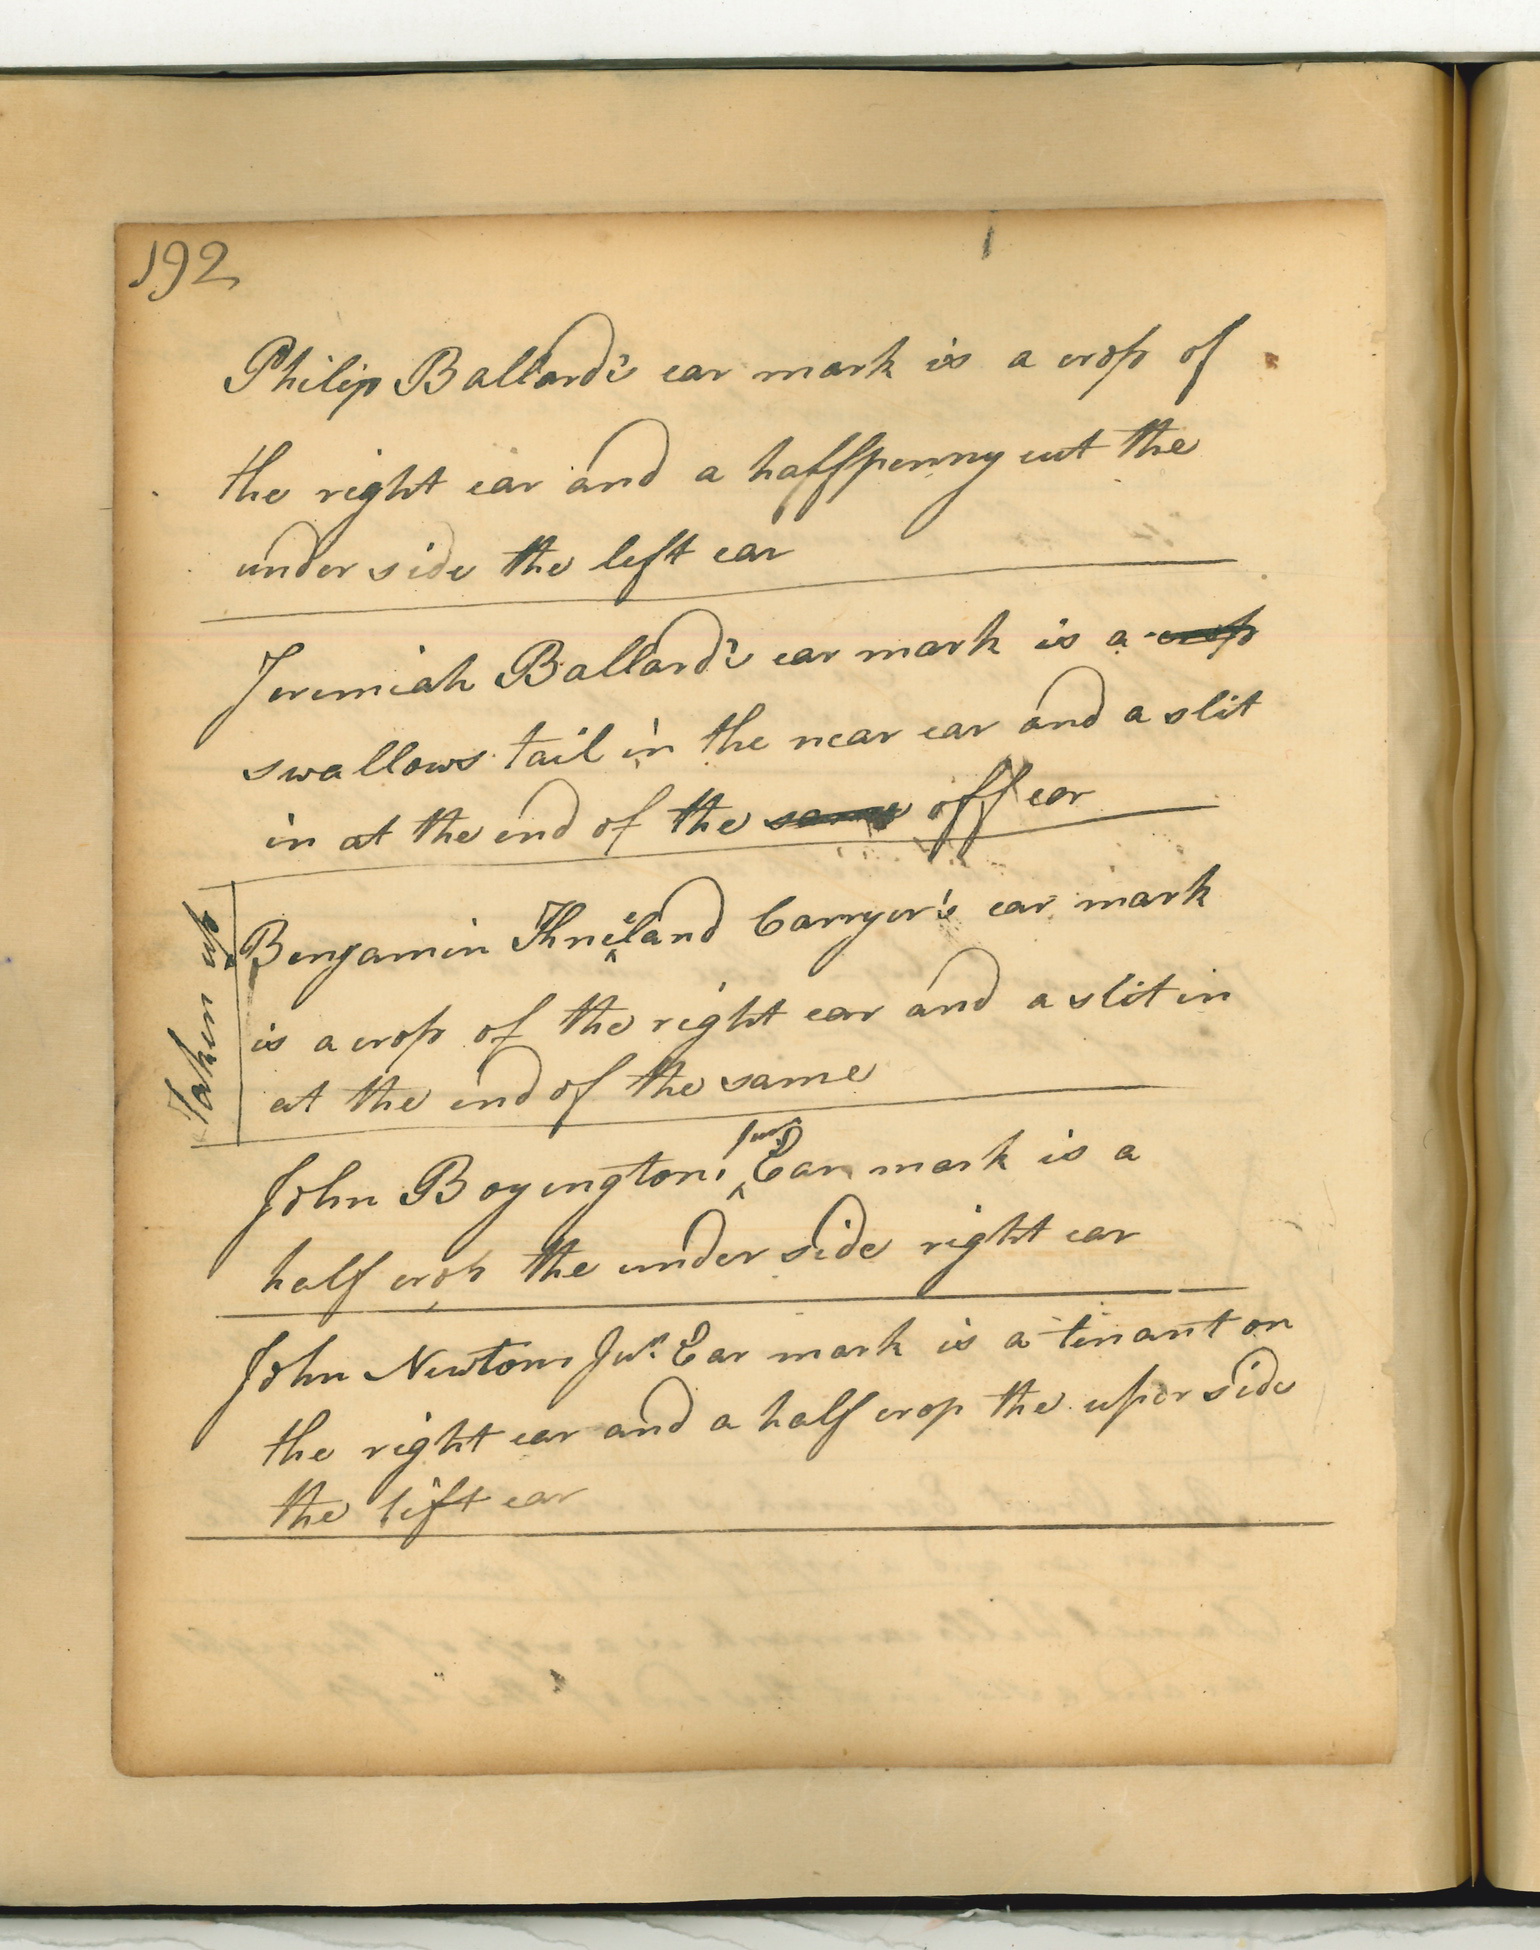 192
Philip Ballard's ear mark is a crop of
the right ear and a haffpenny cut the
under side the left ear
Jeremiah Ballard's ear mark is a crop
swallows tail in the near ear and a slit
in at the end of the same off ear
Taken up
Benjamin Kneeland Carryer's ear mark
is a crop of the right ear and a slit in
at the end of the same
John Boyington's Junr Ear mark is a
half crop the under side right ear
John Newtons Junr Ear mark is a tenant on
the right ear and a half crop the uper side
the left ear